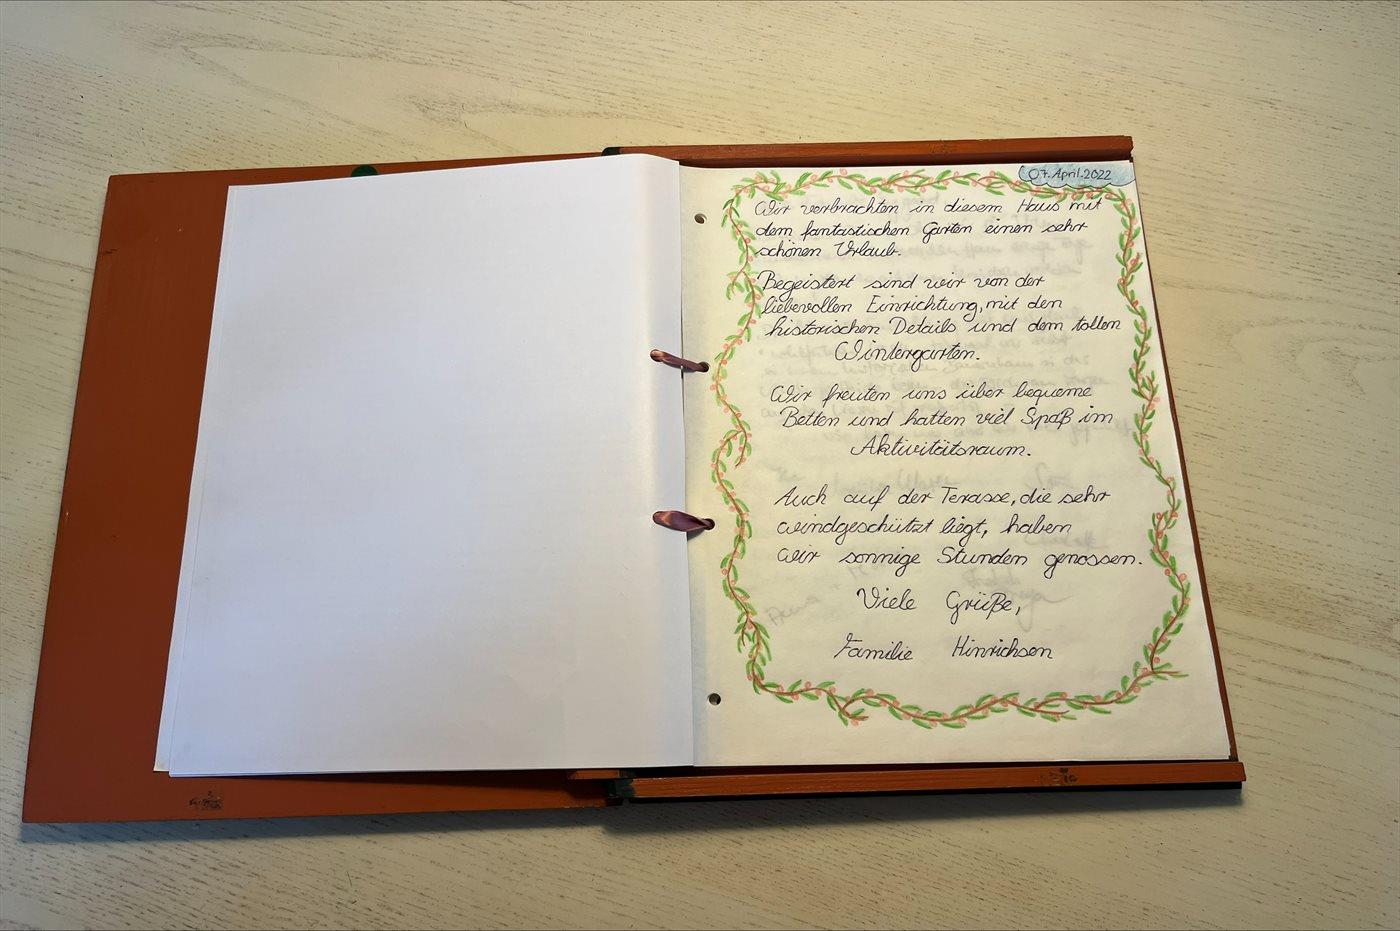 07. April. 2022
Wir verbrachten in diesem Haus mit
dem fantastischen Garten einen sehr
schönen Urlaub.
Begeistert sind wir von der
liebevollen Einrichtung, mit den
historischen Details und dem tollen
Wintergarten.
Wir freuten uns über bequeme
Betten und hatten viel Spaß im
Aktivitätsraum.
Auch auf der Terasse, die sehr
windgeschützt liegt, haben
wir sonnige Stunden genossen.
Viele Grüße,
Familie Hinrichsen